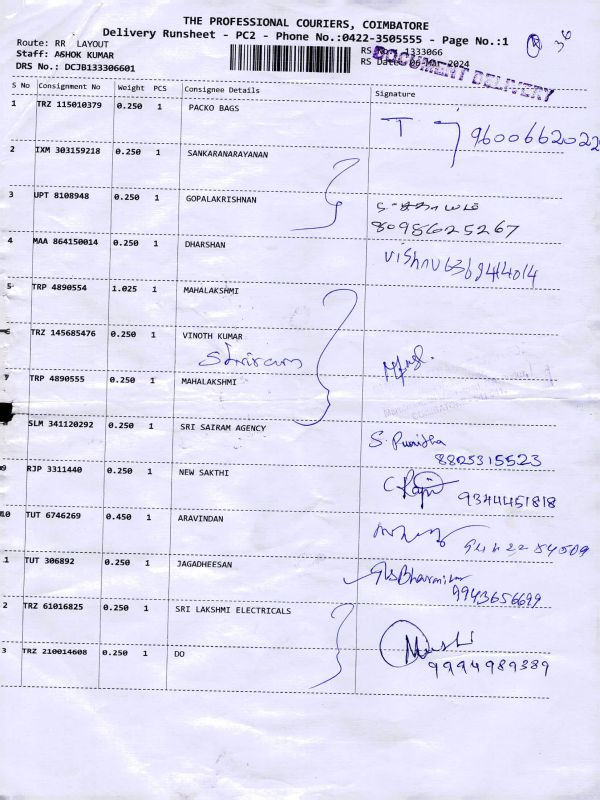 THE PROFESSIONAL COURIERS, COIMBATORE
Delivery Runsheet - PC2 - Phone No.:0422-3505555 - Page No.:1
Route: RR LAYOUT
Staff: ASHOK KUMAR
DRS No.: DCJB133306601
RS No.: 1333066
RS Date: 06-Mar-2024
DOCUMENT DELIVERY
36
S No Consignment No Weight PCS Consignee Details Signature
1 TRZ 115010379 0.250 1 PACKO BAGS
9600662022
2 IXM 303159218 0.250 1 SANKARANARAYANAN
3 UPT 8108948 0.250 1 GOPALAKRISHNAN
8098625267
4 MAA 864150014 0.250 1 DHARSHAN
Vishnu 6369444014
5 TRP 4890554 1.025 1 MAHALAKSHMI
6 TRZ 145685476 0.250 1 VINOTH KUMAR
Shriram
7 TRP 4890555 0.250 1 MAHALAKSHMI
8 SLM 341120292 0.250 1 SRI SAIRAM AGENCY
S. Punitha
8805315523
9 RJP 3311440 0.250 1 NEW SAKTHI
C Raju 9344451818
10 TUT 6746269 0.450 1 ARAVINDAN
1 TUT 306892 0.250 1 JAGADHEESAN
9943656699
2 TRZ 61016825 0.250 1 SRI LAKSHMI ELECTRICALS
3 TRZ 210014608 0.250 1 DO
9994989389